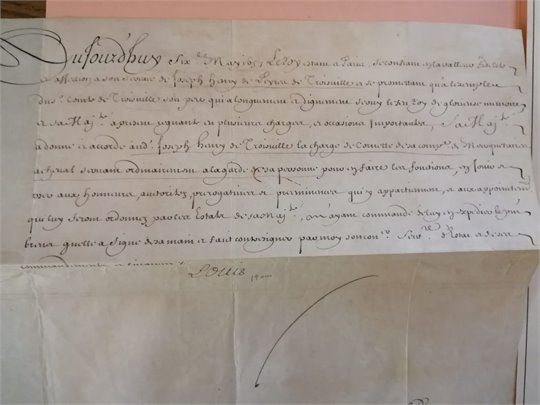 Aujourd'huy six.e May Le Roy estant a Paris se confiant en la valleur fidelité
et affection a son service de Joseph Henry de Peyrer de Troisville et se promettant qu'a l'exemple
du s.r Comte de Troisville son pere qui a longuement et dignement servy le feu Roy de glorieuse memoire
et sa Maj.té a present regnant en plusieurs charges, et occasions importantes, Sa Maj.té
a donné et accordé aud. Joseph Henry de Troisville la charge de Cornette de sa comp.e de Mousquetaires
a cheval servant ordinairement a la garde de sa personne pour en faire les fonctions, en jouir et
user aux honneurs, autoritez, prerogatives et preeminences qui y appartiennent, et aux appointemens
qui luy seront ordonnez par les Estats de sa Maj.té, m'ayant commandé de luy en expedier le present
brevet qu'elle a signé de sa main et faict contresigner par moy son con.er Secr.re d'Estat et de ses
commandements et finances
Louis